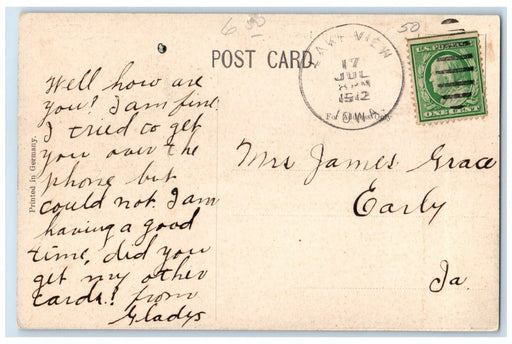 6 50
50
POST CARD
LAKE VIEW
17
JUL
1912
IOWA
U.S. POSTAGE
ONE CENT
Well how are
you? I am fine
I tried to get
you over the
phone but
could not I am
having a good
time, did you
get my other
cards! from
Gladys
Printed in Germany.
Mr James Grace
Early
Ia.